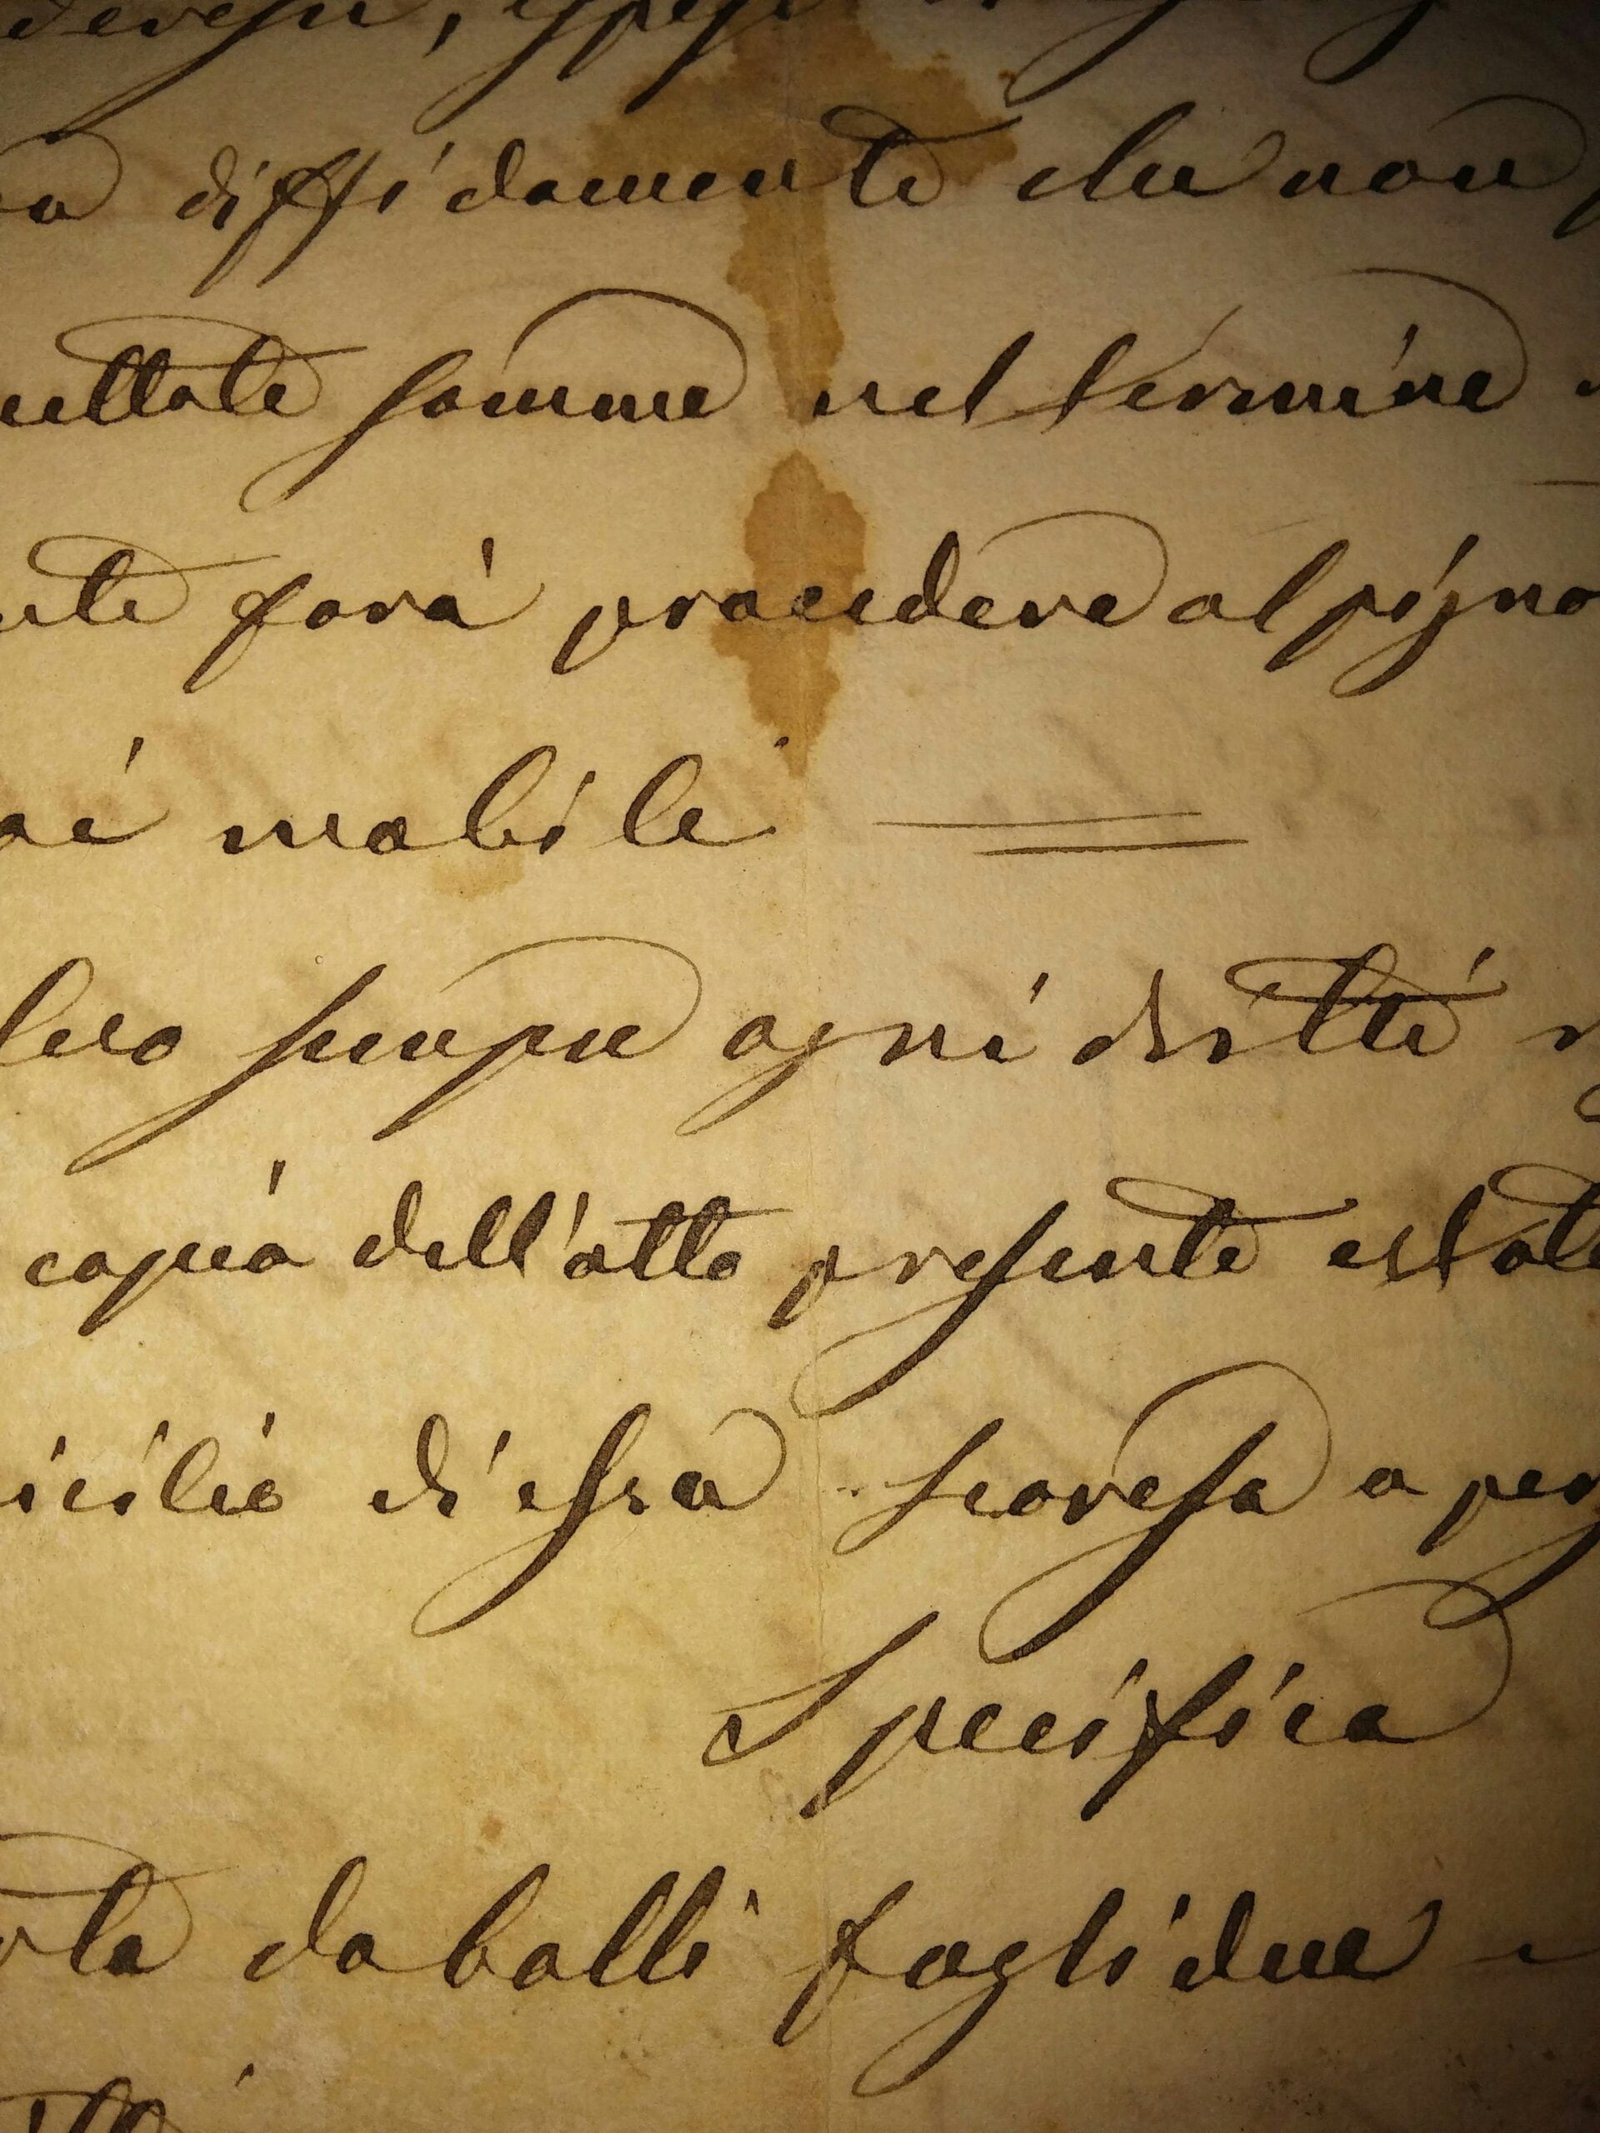 diffidamente che non
ettate somme nel termine
nte farà procedere al pigno
mobile
salvo sempre ogni dritto
copia dell'atto presente è stata
icilio di essa Scoresa a per
Specifica
rta da bolli fogli due